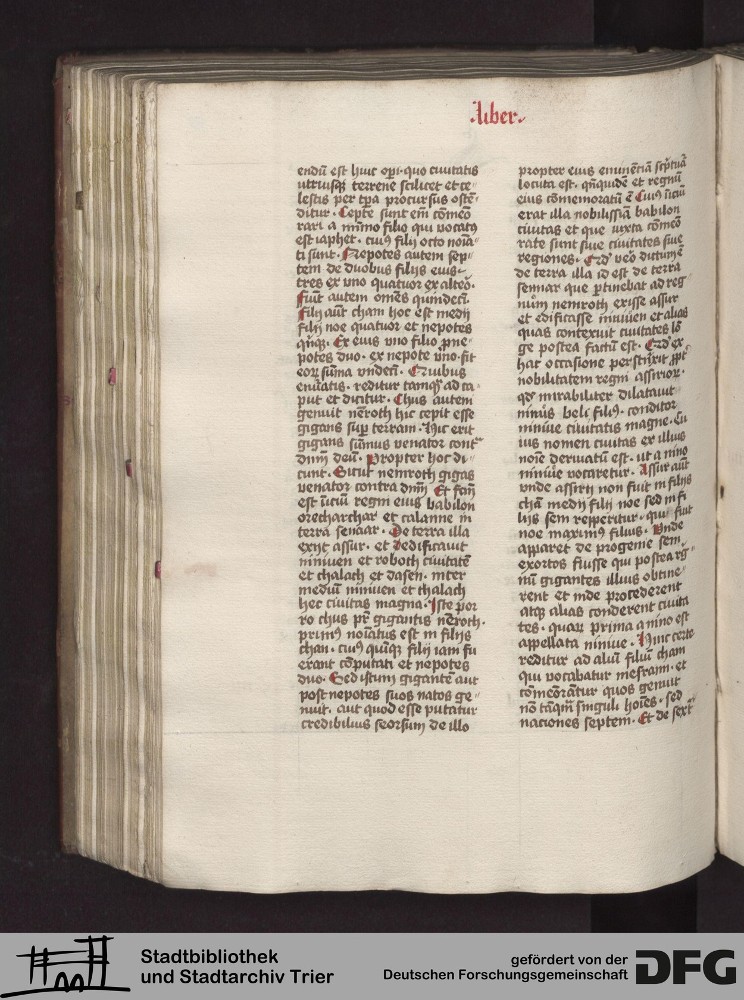 ·liber·
endū est huic oꝑi· quo ciuitatis
utriusqꝫ terrene scilicet et ce⸗
lestis per tꝑa procursus ostē⸗
ditur· Cepte sunt em̄ cōmēo
rari a mīmo filio qui vocatꝰ
est iaphet· cuiꝰ filij octo noīa⸗
ti sunt· Nepotes autem sep⸗
tem de duobus filijs eius·
tres ex vno quatuor ex alteō·
Fiūt autem omēs quindecī·
Filij aūt cham hoc est medij
filij noe quatuor et nepotes
qn̄qꝫ· Ex eius vno filio ꝓne⸗
potes duo· ex nepote vno· fit
eoꝝ sūma vndecī· Quibus
enūatis· reditur tamqꝫ ad ca⸗
put et dicitur· Chus autem
genuit nēroth hic cepit esse
gigans suꝑ terram· Hic erit
gigans sūmus venator contᵃ
dnm̄ deū· Propter hoc di⸗
cunt· Sicut nemroth gigas
venator contra dnm̄ Et fcm̄
est īiciū regni eius babilon
orecharchar et calanne in
terra senaar· De terra illa
exijt assur· et dedificauit
niniuen et roboth ciuitatē
et chalach et dasen· inter
mediū niniuen et chalach
hec ciuitas magna· Iste por
ro chus pr̄ gigantis nēroth·
primꝰ noīatus est in filijs
chan· cuiꝰ quīqꝫ filij iam fu
erant cōputati et nepotes
duo· Sed istum gigantē aut
post nepotes suos natos ge⸗
nuit· aut quod esse putatur
credibilius seorsum de illo
propter eius eminētiā sc̄ptuā
locuta est· qn̄quidē et regnū
eius cōmemoratū ē Cuiꝰ īiciū
erat illa nobilissīa babilon
ciuitas et que iuxta cōmeō
rate sunt siue ciuitates siue
regiones· Qd' veō dictum ē
de terra illa id est de terra
sennar que ꝑtinebat ad reg⸗
nūm nemroth exisse assur
et edificasse niniuen et alias
quas contexuit ciuitates lō
ge postea factū est· Qd' ex
hac occasione perstrīxit ꝓpt'
nobilitatem regni assirioꝝ·
qd' mirabiliter dilatauit
ninus beli filiꝰ· conditor
niniue ciuitatis magne· Cu
ius nomen ciuitas ex illius
noīe deriuatū est· ut a nino
niniue vocaretur· Assur aūt
vnde assirij non fuit in filijs
chā medij filij noe sed in fi
lijs sem reperitur· qui fuit
noe maximꝰ filius· Vnde
apparet de progenie sem·
exortos fuisse qui postea rg̅⸗
nū gigantes illius obtine⸗
rent et inde procederent
atqꝫ alias conderent ciuita
tes· quaꝝ prima a nino est
appellata niniue· Hinc certe
reditur ad aliū filiū cham
qui vocabatur mesraim· et
cōmeōratur quos genuit
nō tāqm̄ singuli hoīes· sed
naciones septem· Et de sext'
Stadtbibliothek
und Stadtarchiv Trier
gefördert von der
Deutschen Forschungsgemeinschaft
DFG